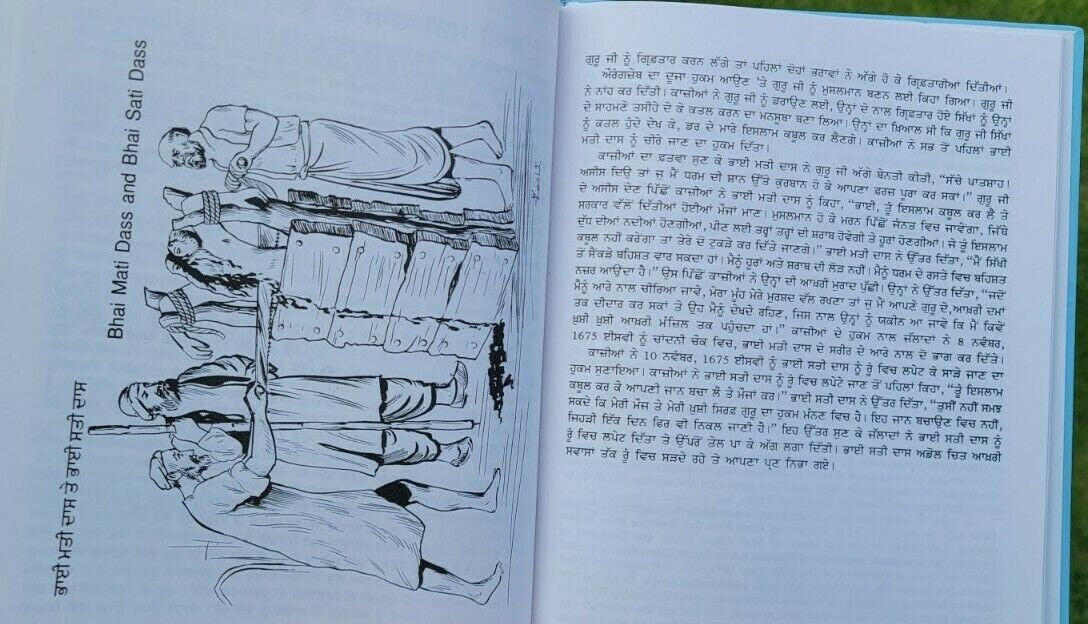 ਭਾਈ ਮਤੀ ਦਾਸ ਤੇ ਭਾਈ ਸਤੀ ਦਾਸ
Bhai Mati Dass and Bhai Sati Dass
ਗੁਰੂ ਜੀ ਨੂੰ ਗ੍ਰਿਫ਼ਤਾਰ ਕਰਨ ਲੱਗੇ ਤਾਂ ਪਹਿਲਾਂ ਦੋਹਾਂ ਭਰਾਵਾਂ ਨੇ ਅੱਗੇ ਹੋ ਕੇ ਗ੍ਰਿਫ਼ਤਾਰੀਆਂ ਦਿੱਤੀਆਂ।
ਔਰੰਗਜ਼ੇਬ ਦਾ ਦੂਜਾ ਹੁਕਮ ਆਉਣ 'ਤੇ ਗੁਰੂ ਜੀ ਨੂੰ ਮੁਸਲਮਾਨ ਬਣਨ ਲਈ ਕਿਹਾ ਗਿਆ। ਗੁਰੂ ਜੀ
ਨੇ ਨਾਂਹ ਕਰ ਦਿੱਤੀ। ਕਾਜ਼ੀਆਂ ਨੇ ਗੁਰੂ ਜੀ ਨੂੰ ਡਰਾਉਣ ਲਈ, ਉਨ੍ਹਾਂ ਦੇ ਨਾਲ ਗ੍ਰਿਫ਼ਤਾਰ ਹੋਏ ਸਿੱਖਾਂ ਨੂੰ ਉਨ੍ਹਾਂ
ਦੇ ਸਾਹਮਣੇ ਤਸੀਹੇ ਦੇ ਕੇ ਕਤਲ ਕਰਨ ਦਾ ਮਨਸੂਬਾ ਬਣਾ ਲਿਆ। ਉਨ੍ਹਾਂ ਦਾ ਖ਼ਿਆਲ ਸੀ ਕਿ ਗੁਰੂ ਜੀ ਸਿੱਖਾਂ
ਨੂੰ ਕਤਲ ਹੁੰਦੇ ਦੇਖ ਕੇ, ਡਰ ਦੇ ਮਾਰੇ ਇਸਲਾਮ ਕਬੂਲ ਕਰ ਲੈਣਗੇ। ਕਾਜ਼ੀਆਂ ਨੇ ਸਭ ਤੋਂ ਪਹਿਲਾਂ ਭਾਈ
ਮਤੀ ਦਾਸ ਨੂੰ ਚੀਰੇ ਜਾਣ ਦਾ ਹੁਕਮ ਦਿੱਤਾ।
ਕਾਜ਼ੀਆਂ ਦਾ ਫ਼ਤਵਾ ਸੁਣ ਕੇ ਭਾਈ ਮਤੀ ਦਾਸ ਨੇ ਗੁਰੂ ਜੀ ਅੱਗੇ ਬੇਨਤੀ ਕੀਤੀ, "ਸੱਚੇ ਪਾਤਸ਼ਾਹ!
ਅਸੀਸ ਦਿਉ ਤਾਂ ਜੁ ਮੈਂ ਧਰਮ ਦੀ ਸ਼ਾਨ ਉੱਤੇ ਕੁਰਬਾਨ ਹੋ ਕੇ ਆਪਣਾ ਫ਼ਰਜ਼ ਪੂਰਾ ਕਰ ਸਕਾਂ।" ਗੁਰੂ ਜੀ
ਦੇ ਅਸੀਸ ਦੇਣ ਪਿੱਛੋਂ ਕਾਜ਼ੀਆਂ ਨੇ ਭਾਈ ਮਤੀ ਦਾਸ ਨੂੰ ਕਿਹਾ, "ਭਾਈ, ਤੂੰ ਇਸਲਾਮ ਕਬੂਲ ਕਰ ਲੈ ਤੇ
ਸਰਕਾਰ ਵੱਲੋਂ ਦਿੱਤੀਆਂ ਹੋਈਆਂ ਮੌਜਾਂ ਮਾਣ। ਮੁਸਲਮਾਨ ਹੋ ਕੇ ਮਰਨ ਪਿੱਛੋਂ ਜੰਨਤ ਵਿਚ ਜਾਵੇਗਾ, ਜਿੱਥੇ
ਦੁੱਧ ਦੀਆਂ ਨਦੀਆਂ ਹੋਣਗੀਆਂ, ਪੀਣ ਲਈ ਤਰ੍ਹਾਂ ਤਰ੍ਹਾਂ ਦੀ ਸ਼ਰਾਬ ਹੋਵੇਗੀ ਤੇ ਹੂਰਾਂ ਹੋਣਗੀਆਂ। ਜੇ ਤੂੰ ਇਸਲਾਮ
ਕਬੂਲ ਨਹੀਂ ਕਰੇਂਗਾ ਤਾਂ ਤੇਰੇ ਦੋ ਟੁਕੜੇ ਕਰ ਦਿੱਤੇ ਜਾਣਗੇ।" ਭਾਈ ਮਤੀ ਦਾਸ ਨੇ ਉੱਤਰ ਦਿੱਤਾ, "ਮੈਂ ਸਿੱਖੀ
ਤੋਂ ਸੈਂਕੜੇ ਬਹਿਸ਼ਤ ਵਾਰ ਸਕਦਾ ਹਾਂ। ਮੈਨੂੰ ਹੂਰਾਂ ਅਤੇ ਸ਼ਰਾਬ ਦੀ ਲੋੜ ਨਹੀਂ। ਮੈਨੂੰ ਧਰਮ ਦੇ ਰਸਤੇ ਵਿਚ ਬਹਿਸ਼ਤ
ਨਜ਼ਰ ਆਉਂਦਾ ਹੈ।" ਉਸ ਪਿੱਛੋਂ ਕਾਜ਼ੀਆਂ ਨੇ ਉਨ੍ਹਾਂ ਦੀ ਆਖ਼ਰੀ ਮੁਰਾਦ ਪੁੱਛੀ। ਉਨ੍ਹਾਂ ਨੇ ਉੱਤਰ ਦਿੱਤਾ, "ਜਦੋਂ
ਮੈਨੂੰ ਆਰੇ ਨਾਲ ਚੀਰਿਆ ਜਾਵੇ, ਮੇਰਾ ਮੂੰਹ ਮੇਰੇ ਮੁਰਸ਼ਦ ਵੱਲ ਰਖਣਾ ਤਾਂ ਜੁ ਮੈਂ ਆਪਣੇ ਗੁਰੂ ਦੇ, ਆਖ਼ਰੀ ਦਮਾਂ
ਤਕ ਦੀਦਾਰ ਕਰ ਸਕਾਂ ਤੇ ਉਹ ਮੈਨੂੰ ਦੇਖਦੇ ਰਹਿਣ, ਜਿਸ ਨਾਲ ਉਨ੍ਹਾਂ ਨੂੰ ਯਕੀਨ ਆ ਜਾਵੇ ਕਿ ਮੈਂ ਕਿਵੇਂ
ਖ਼ੁਸ਼ੀ ਖ਼ੁਸ਼ੀ ਆਖ਼ਰੀ ਮੰਜ਼ਿਲ ਤਕ ਪਹੁੰਚਦਾ ਹਾਂ।" ਕਾਜ਼ੀਆਂ ਦੇ ਹੁਕਮ ਨਾਲ ਜੱਲਾਦਾਂ ਨੇ 8 ਨਵੰਬਰ,
1675 ਈਸਵੀ ਨੂੰ ਚਾਂਦਨੀ ਚੌਕ ਵਿਚ, ਭਾਈ ਮਤੀ ਦਾਸ ਦੇ ਸਰੀਰ ਦੇ ਆਰੇ ਨਾਲ ਦੋ ਭਾਗ ਕਰ ਦਿੱਤੇ।
ਕਾਜ਼ੀਆਂ ਨੇ 10 ਨਵੰਬਰ, 1675 ਈਸਵੀ ਨੂੰ ਭਾਈ ਸਤੀ ਦਾਸ ਨੂੰ ਰੂੰ ਵਿਚ ਲਪੇਟ ਕੇ ਸਾੜੇ ਜਾਣ ਦਾ
ਹੁਕਮ ਸੁਣਾਇਆ। ਕਾਜ਼ੀਆਂ ਨੇ ਭਾਈ ਸਤੀ ਦਾਸ ਨੂੰ ਰੂੰ ਵਿਚ ਲਪੇਟੇ ਜਾਣ ਤੋਂ ਪਹਿਲਾਂ ਕਿਹਾ, "ਤੂੰ ਇਸਲਾਮ
ਕਬੂਲ ਕਰ ਕੇ ਆਪਣੀ ਜਾਨ ਬਚਾ ਲੈ ਤੇ ਮੌਜਾਂ ਕਰ।" ਭਾਈ ਸਤੀ ਦਾਸ ਨੇ ਉੱਤਰ ਦਿੱਤਾ, "ਤੁਸੀਂ ਨਹੀਂ ਸਮਝ
ਸਕਦੇ ਕਿ ਮੇਰੀ ਮੌਜ ਤੇ ਮੇਰੀ ਖ਼ੁਸ਼ੀ ਸਿਰਫ਼ ਗੁਰੂ ਦਾ ਹੁਕਮ ਮੰਨਣ ਵਿਚ ਹੈ। ਇਹ ਜਾਨ ਬਚਾਉਣ ਵਿਚ ਨਹੀਂ,
ਜਿਹੜੀ ਇੱਕ ਦਿਨ ਫਿਰ ਵੀ ਨਿਕਲ ਜਾਣੀ ਹੈ।" ਇਹ ਉੱਤਰ ਸੁਣ ਕੇ ਜੱਲਾਦਾਂ ਨੇ ਭਾਈ ਸਤੀ ਦਾਸ ਨੂੰ
ਰੂੰ ਵਿਚ ਲਪੇਟ ਦਿੱਤਾ ਤੇ ਉੱਪਰੋਂ ਤੇਲ ਪਾ ਕੇ ਅੱਗ ਲਗਾ ਦਿੱਤੀ। ਭਾਈ ਸਤੀ ਦਾਸ ਅਡੋਲ ਚਿਤ ਆਖ਼ਰੀ
ਸਵਾਸਾਂ ਤੱਕ ਰੂੰ ਵਿਚ ਸੜਦੇ ਰਹੇ ਤੇ ਆਪਣਾ ਪ੍ਰਣ ਨਿਭਾ ਗਏ।